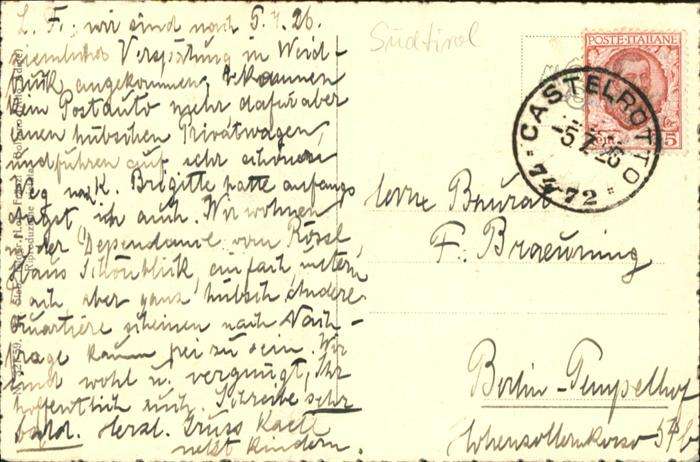 L. F., wir sind nach 5. 7. 26.
ziemlicher Verspätung in Waid-
bruk angekommen, bekammen
kein Postauto mehr dafür aber
einen hübschen Privatwagen,
und führen auf sehr schönem
Weg nach K. Brigitte hatte anfangs
Angst ich auch. Wir wohnen
in der Dependance vom Rössl,
Haus Schönblick, einfach,
aber ganz hübsch, andere
Quartiere scheinen nach Nach-
frage kaum frei zu sein. Wir
sind wohl u. vergnügt, Ihr
hoffentlich auch. Schreibe sehr
bald. Herzl. Gruss
nebst Kindern.
Südtirol
POSTE·ITALIANE
CASTELROTTO
-5.7.26
74-72
Baurat
F. Braeuning
Berlin-Tempelhof